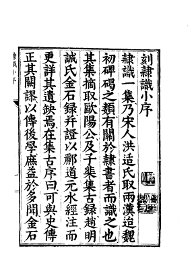 刻隸識小序
隸識一集乃宋人洪适氏取兩漢迨魏
初碑碣之類有關於隸書者而識之也
其集摘取歐陽公及子棐集古錄趙明
誠氏金石錄并證以酈道元水經注而
更詳其遺缺焉在集古序曰可與史傳
正其闕謬以傳後學庶益於多聞金石